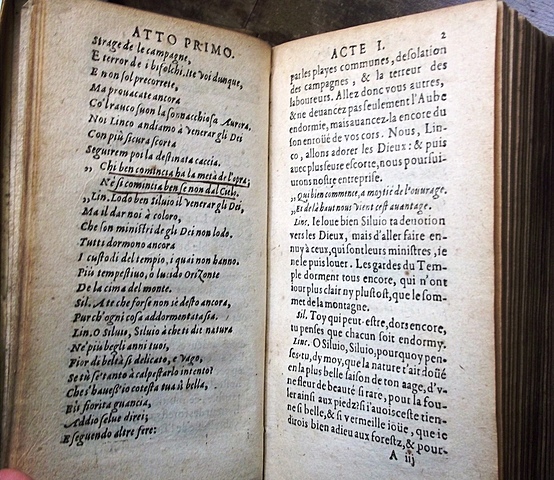 ATTO PRIMO.
Strage de le campagne,
E terror de i bifolchi. Ite voi dunque,
E non sol precorrete,
Ma prouacate ancora
Co'l rauco suon la sonnacchiosa Aurora.
Noi Linco andiamo à venerar gli Dei
Con più sicura scorta
Seguirem poi la destinata caccia.
„ Chi ben comincia ha la metà de l'opra;
Nè si comincia ben se non dal Cielo.
„ Lin. Lodo ben Siluio il venerar gli Dei,
Ma il dar noi à coloro,
Che son ministri de gli Dei non lodo.
Tutti dormono ancora
I custodi del tempio, i quai non hanno.
Più tempestiuo, o lucido Orizonte
De la cima del monte.
Sil. A te che forse non sè desto ancora,
Par ch'ogni cosa addormentata sia.
Lin. O Siluio, Siluio à che ti diè natura
Ne' più begli anni tuoi,
Fior di beltà sì delicato, e vago,
Se tu se' tanto à calpestarlo intento?
Che s'hauess'io cotesta tua sì bella,
E sì fiorita guancia,
Addio selue direi;
E seguendo altre fere:
ACTE I. 2
par les playes communes, desolation
des campagnes, & la terreur des
laboureurs. Allez donc vous autres,
& ne deuancez pas seulement l'Aube
endormie, mais auancez-la encore du
son enroüé de vos cors. Nous, Lin-
co, allons adorer les Dieux: & puis
auec plus seure escorte, nous poursui-
urons nostre entreprise.
„ Qui bien commence, a moytié de l'ouurage.
„ Et de là haut nous vient cest auantage.
Linc. Ie loue bien Siluio ta deuotion
vers les Dieux, mais d'aller faire en-
nuy à ceux, qui sont leurs ministres, ie
ne le puis louer. Les gardes du Tem-
ple dorment tous encore, qui n'ont
iour plus clair ny plustost, que le som-
met de la montagne.
Sil. Toy qui peut-estre, dors encore,
tu penses que chacun soit endormy.
Linc. O Siluio, Siluio, pourquoy pen-
ses-tu, dy moy, que la nature t'ait doüé
en la plus belle saison de ton aage, d'v-
ne fleur de beauté si rare, pour la fou-
ler ainsi aux piedz? si i'auois ceste tien-
ne si belle, & si vermeille ioüe, que ie
dirois bien adieu aux forestz, & pour-
A iij